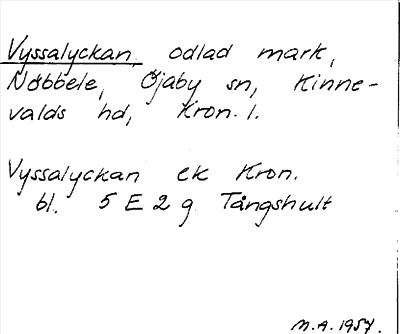 Vyssalyckan, odlad mark,
Nöbbele, Öjaby sn, Kinne-
valds hd, Kron. l.
Vyssalyckan ek Kron.
bl. 5 E 2 g Tångshult
M.A. 1957.